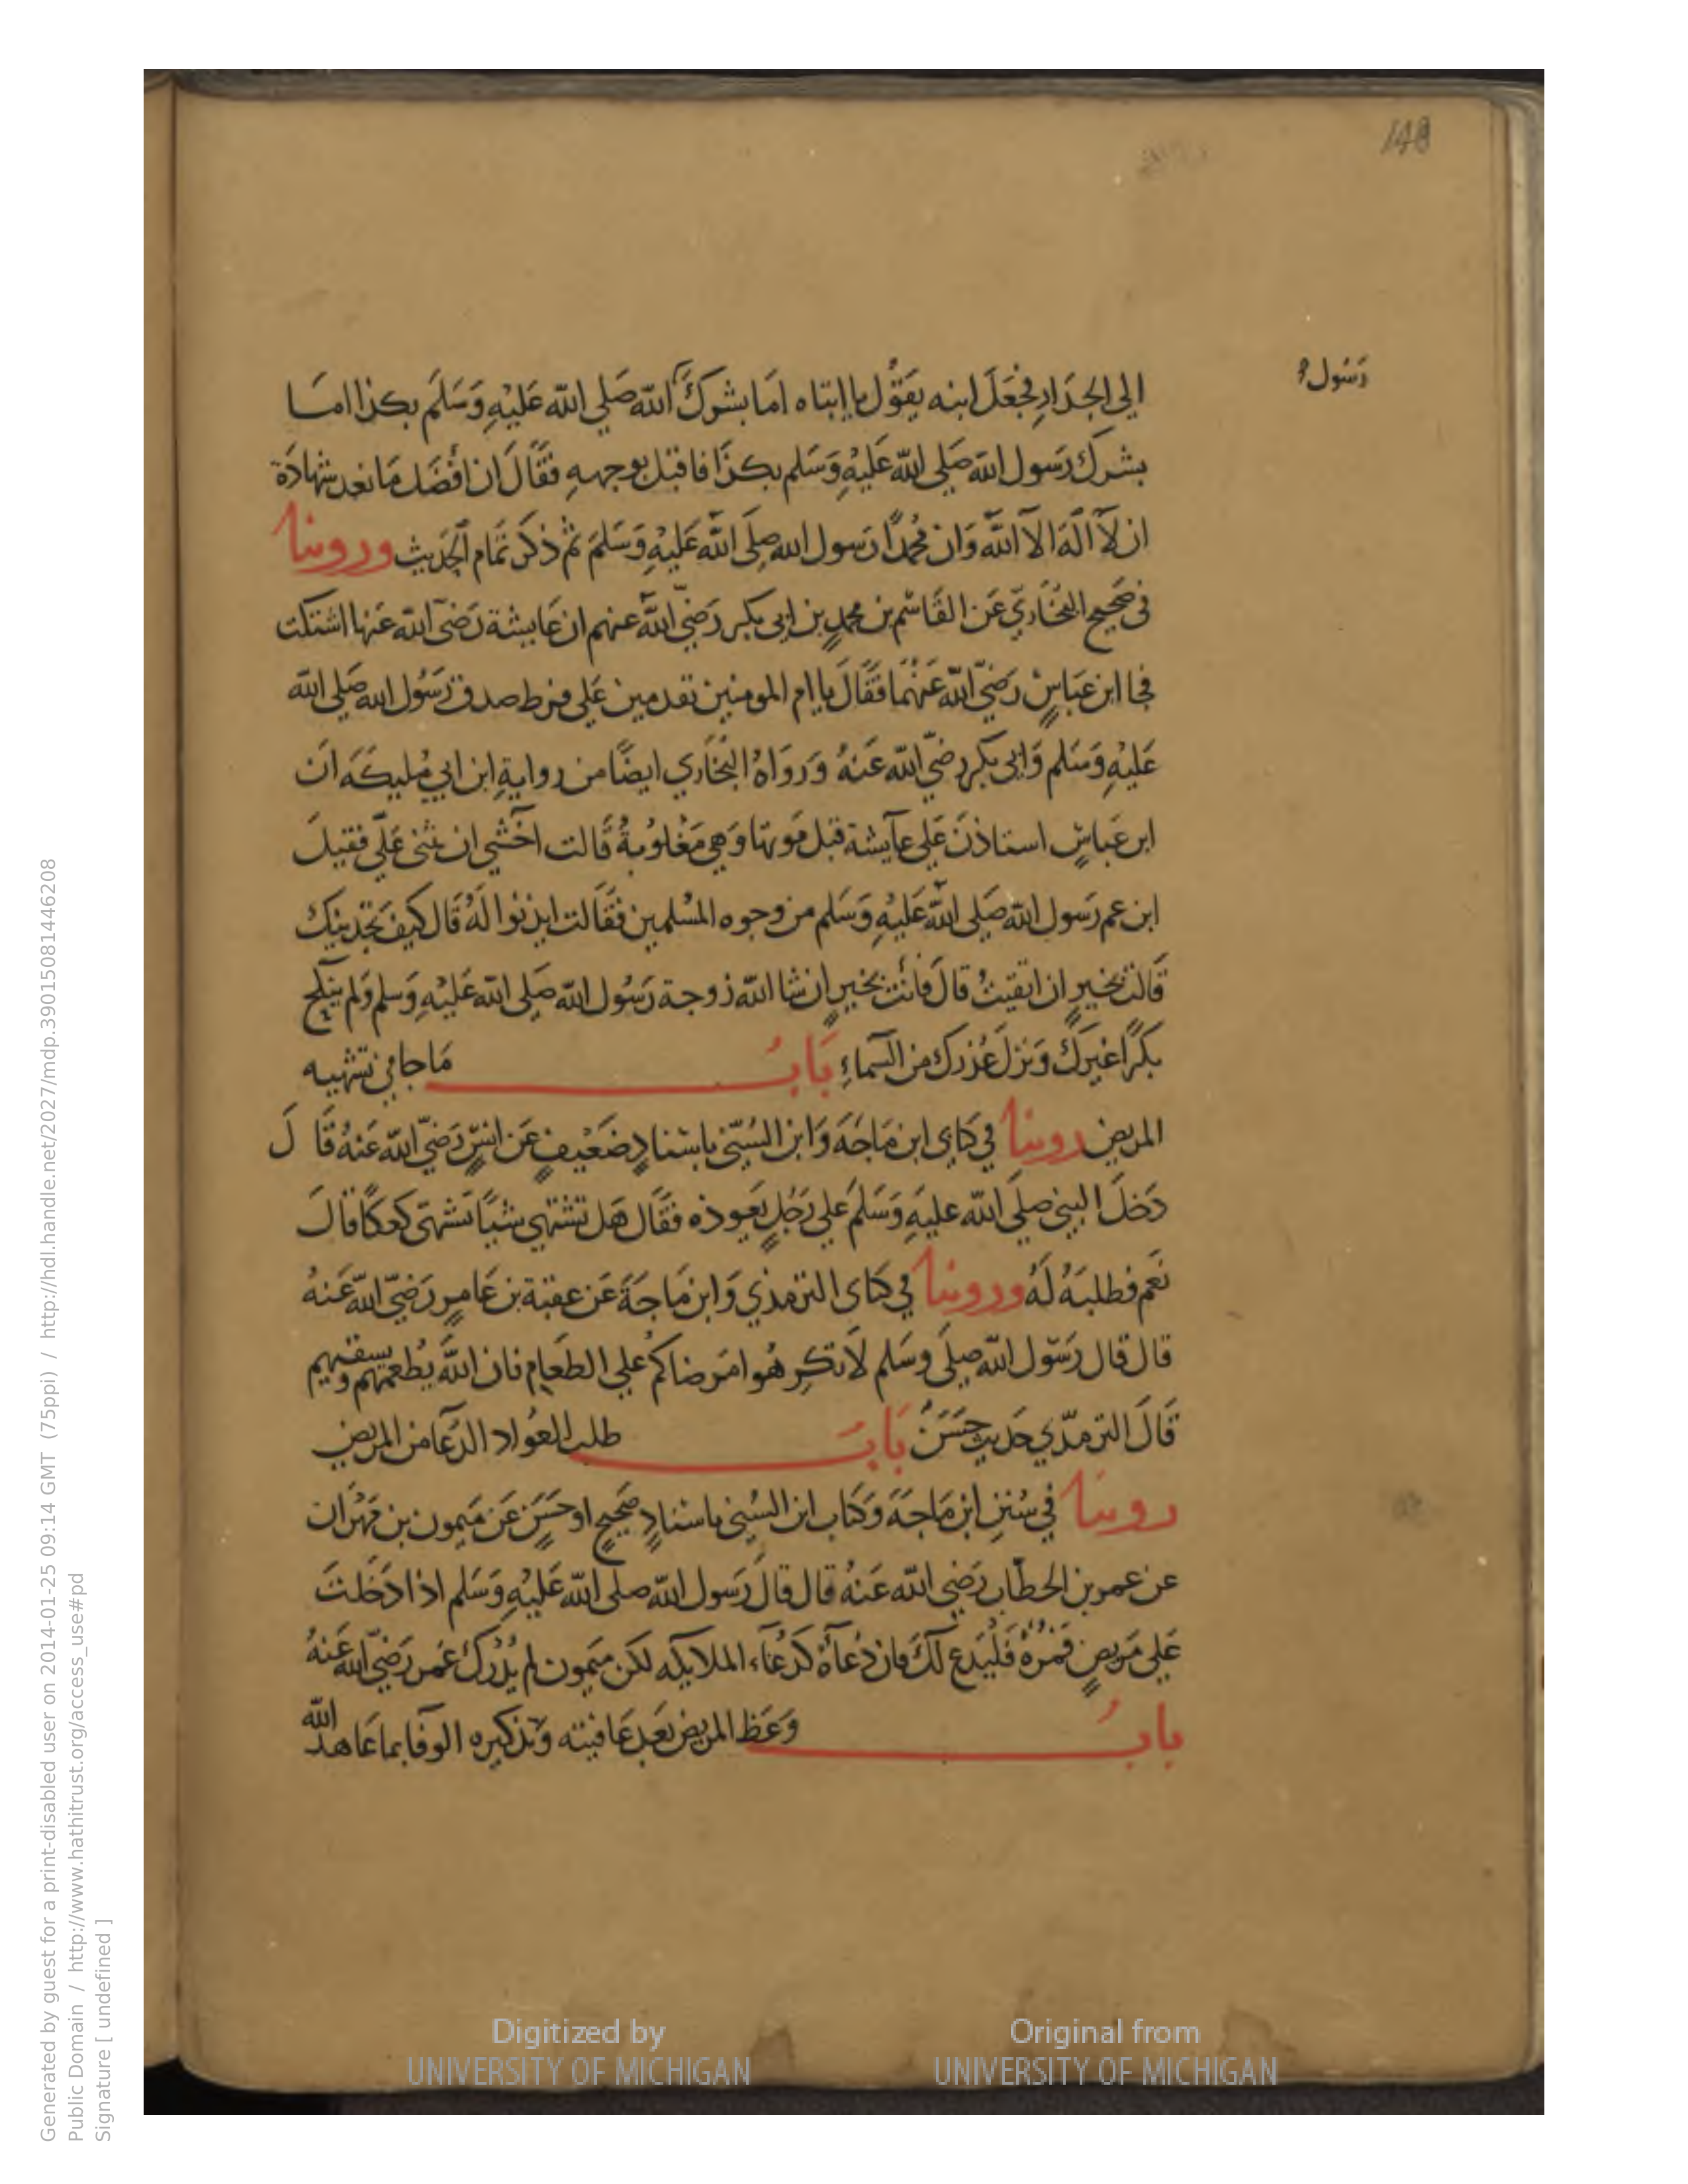 148
رَسُول
الى الجدَارِ فجَعَلَ ابنه يقَوُل يا ابتاه امَا بشركَ الله صَلى الله عَليْهِ وَسَلَم بكذا امَا
بشرك رَسول الله صَلى الله عَليْهِ وَسَلم بكذَا فاقبل بوجهه فقَالَ ان افْضَل مَا نعد شهادَة
ان لاَ الَهَ الا الله وَان محُمدًا رَسول الله صِلَى الله عَليْهِ وَسَلمَ ثم ذكَرَ تمَام الحَديث وروينا
فى صَحِيح البخُارِيّ عَن القَاسْم بن محمدٍ بن ابى بكر رَضىّ الله عنهم ان عَايشة رَضىَ الله عَنها اشتكت
فجا ابن عَباسٍ رَضىّ الله عَنهُما فقَالَ يا ام المومنين تقدمين عَلى فرط صدق رَسُول الله صَلى الله
عَليْهِ وَسَلم وَابى بكر رضىّ الله عَنهُ وَرَوَاهُ البخَاري ايضًا من روايةِ ابن ابي مُليكَه انَ
ابن عَباسٍ استاذنَ عَلى عآيشة قبل مَوتها وَهي مَغْلوُبةٌ قَالت اخْشي ان يثنى عَلَى فقيلَ
ابن عم رَسول الله صَلى الله عَليْهِ وَسَلم من وجوه المسُلمين فقَالت ايذنوا لَهُ قَال كيفَ تجَدينك
قَالت بخيرٍ ان اتقيتُ قالَ فَأنت بخيرٍ ان شا الله زوجة رَسُول الله صَلى الله عَليْهِ وَسلم وَلم ينكح
بكرًا غيرَك وَنزلَ عُذرك من السَمآءِ بَابُ مَا جا في تشهيه
المريض روينا في كتابي ابن مَاجَهَ وَابن السُنىّ باسْنادٍ ضَعْيفٍ عَن انسٍ رَضىّ الله عَنهُ قَالَ
دَخلَ النبيُ صلىَ الله عليَهِ وَسَلمَ عَلى رَجُلٍ يَعوده فقَال هَل تشْتهي شيًا تشَتهى كعكًا قالَ
نعَم فطلبَهُ لَهُ وروينا في كتابى الترمذي وَابن مَاجَةَ عَن عقبة بن عَامرٍ رَضىّ الله عَنهُ
قال قال رَسَوّل الله صِلىَ وسَلم لاَ تكرِهُوا امَرضاكمُ عَلي الطعَام فان الله يُطعمهم ويسقيهم
قَالَ الترمذي حَديث حَسَنٌ بَابُ طلب العُواد الدُعَا من المريض
روينا في سُننِ ابن مَاجَهَ وَكتَاب ابن السُنى باسْنادٍ صَحيحٍ او حَسَنٍ عَن مَيمون بن مَهْرَان
عن عمر بن الخطّاب رَضي الله عَنهُ قال قالَ رَسول الله صلى الله عَليْهِ وَسَلم اذا دَخلتَ
عَلى مَريضٍ فمُرهُ فَلْيَدع لَكَ فان دُعآءَهُ كدُعَاء الملايكه لكن مَيمون لم يُدْرك عُمر رَضىّ الله عَنهُ
بابُ وَعَظ المريض بَعد عَافيته وَتذكيره الوَفا بما عَاهدَ الله
Digitized by
UNIVERSITY OF MICHIGAN
Original from
UNIVERSITY OF MICHIGAN
Generated by guest for a print-disabled user on 2014-01-25 09:14 GMT (75ppi) / http://hdl.handle.net/2027/mdp.39015081446208
Public Domain / http://www.hathitrust.org/access_use#pd
Signature [ undefined ]